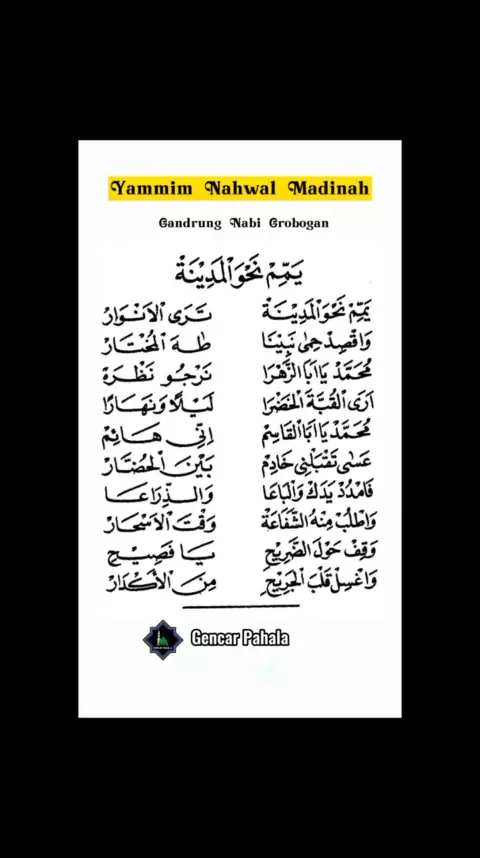 Yammim Nahwal Madinah
Gandrung Nabi Grobogan
يَمِّمْ نَحْوَالْمَدِيْنَةْ
يَمِّمْ نَحْوَالْمَدِيْنَةْ تَرَى الْاَنْوَارْ
وَاقْصِدْ حِمٰى نَبِيْنَا طٰهَ الْمُخْتَارْ
مُحَمَّدْ يَااَبَاالزَّهْرَا نَرْجُو نَظْرَةْ
اَرَى الْقُبَّةَ الْخَضْرَا لَيْلًا وَنَهَارًا
مُحَمَّدْ يَااَبَاالْقَاسِمْ اِنِّي هَائِمْ
عَسٰى تَقْبَلْنِى خَادِمْ بَيْنَ الْحُضَّارْ
فَامْدُدْ يَدَكْ وَالْبَاعَا وَالذِّرَاعَا
وَاطْلُبْ مِنْهُ الشَّفَاعَةْ وَقْتَ الْاَسْحَارْ
وَقِفْ حَوْلَ الضَّرِيْحِ يَا فَصِيْحِ
وَاغْسِلْ قَلْبَ الْجَرِيْحِ مِنَ الْاَكْدَارْ
Gencar Pahala